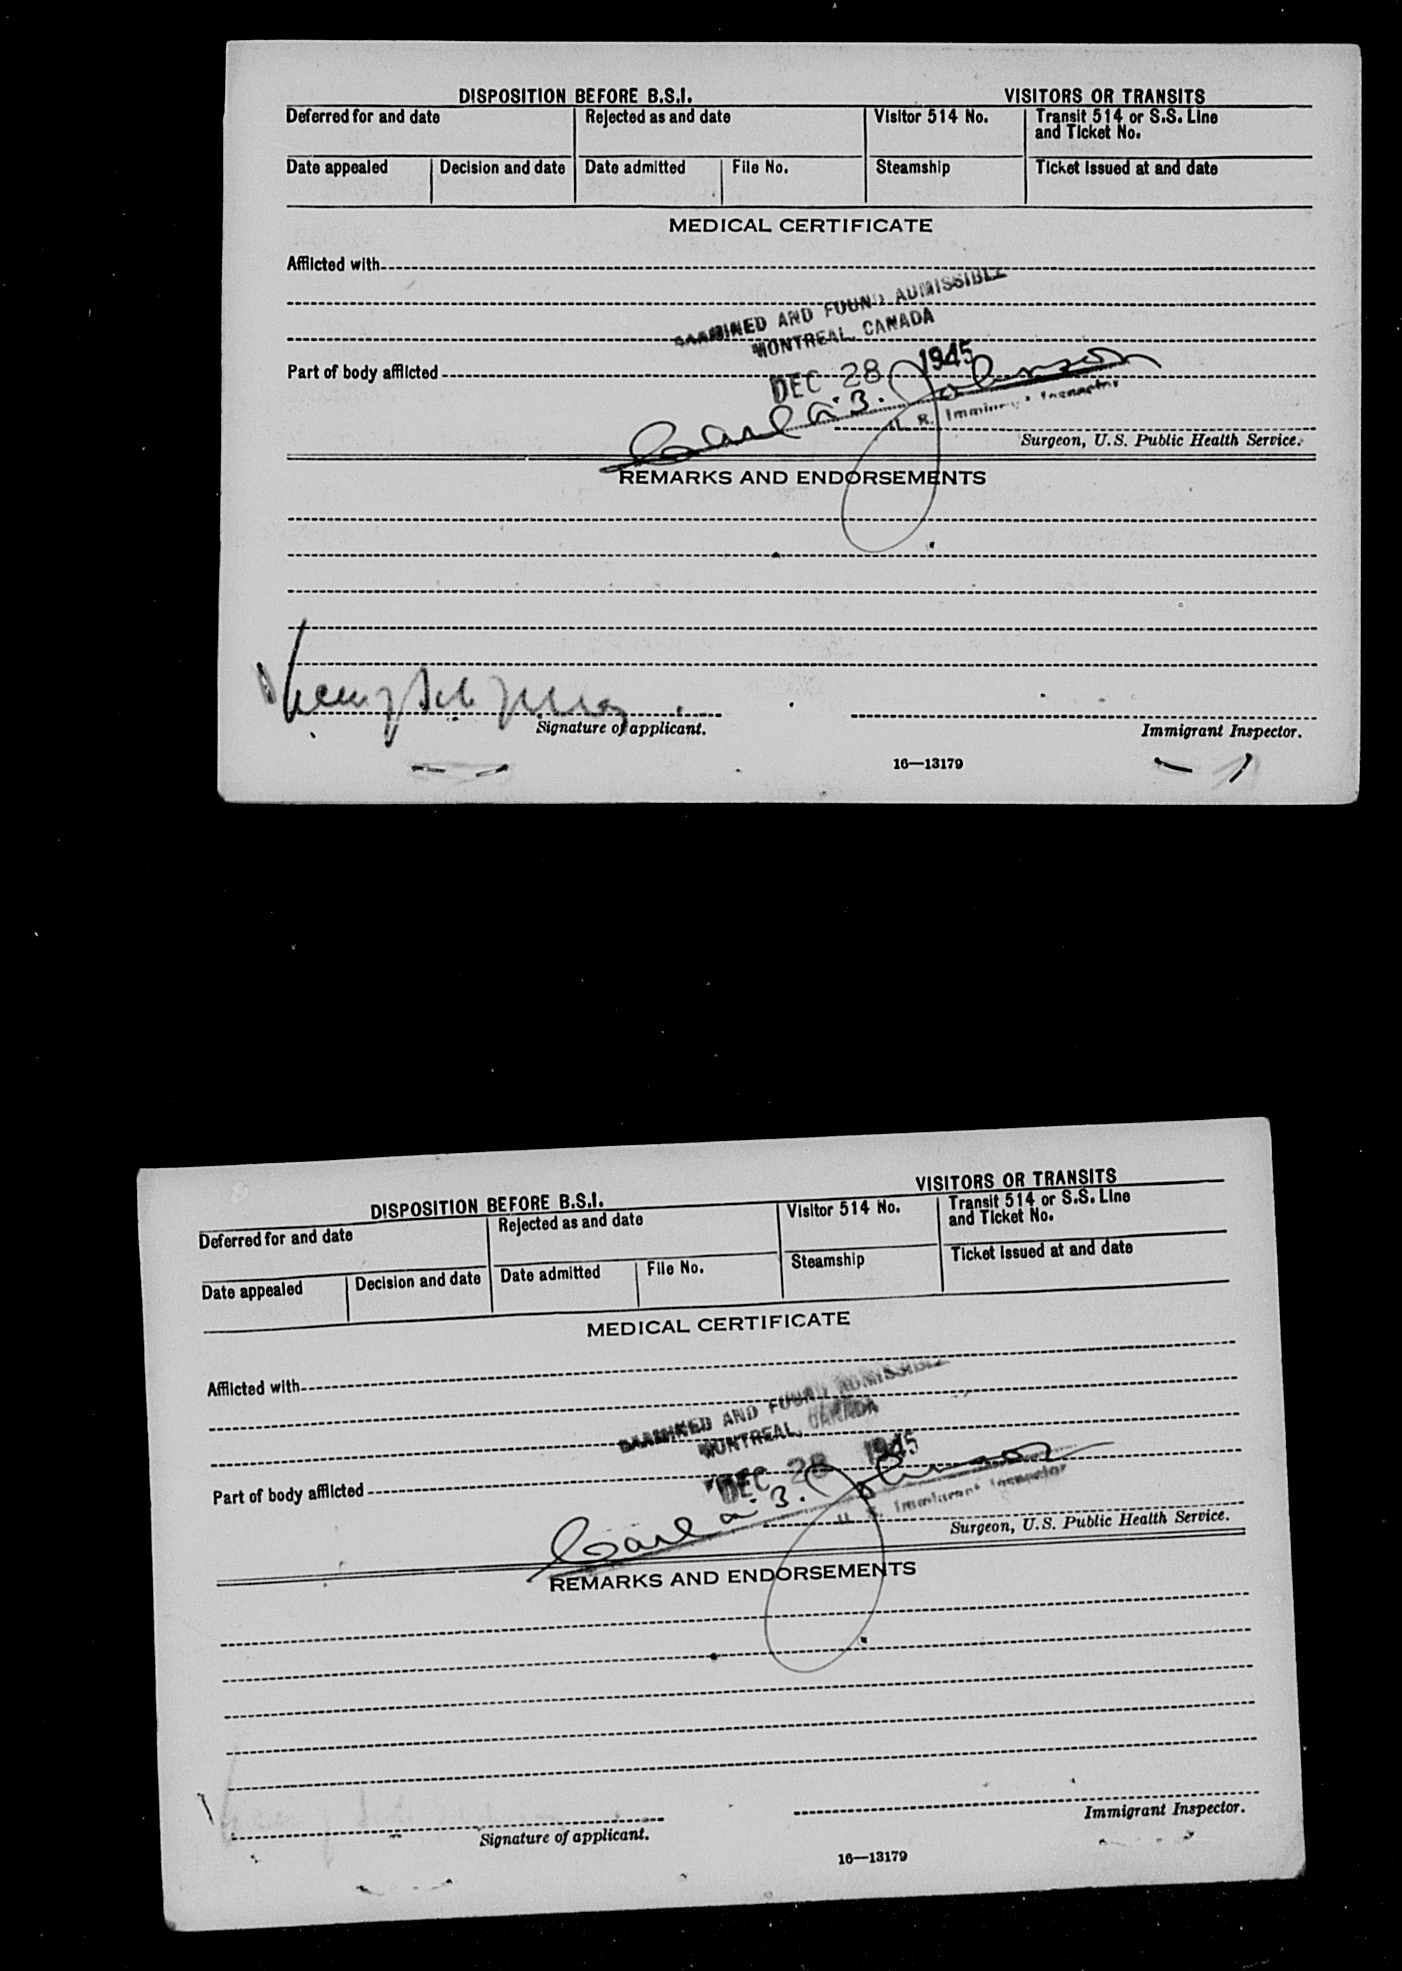 DISPOSITION BEFORE B.S.I.
VISITORS OR TRANSITS
Deferred for and date
Rejected as and date
Visitor 514 No.
Transit 514 or S.S. Line
and Ticket No.
Date appealed
Decision and date
Date admitted
File No.
Steamship
Ticket issued at and date
MEDICAL CERTIFICATE
Afflicted with
EXAMINED AND FOUND ADMISSIBLE
MONTREAL, CANADA
Part of body afflicted
DEC 28 1945
Carl B. Johnson
U. S. Immigrant Inspector
Surgeon, U.S. Public Health Service.
REMARKS AND ENDORSEMENTS
Signature of applicant.
Immigrant Inspector.
16—13179
DISPOSITION BEFORE B.S.I.
VISITORS OR TRANSITS
Deferred for and date
Rejected as and date
Visitor 514 No.
Transit 514 or S.S. Line
and Ticket No.
Date appealed
Decision and date
Date admitted
File No.
Steamship
Ticket issued at and date
MEDICAL CERTIFICATE
Afflicted with
EXAMINED AND FOUND ADMISSIBLE
MONTREAL, CANADA
Part of body afflicted
DEC 28 1945
Carl B. Johnson
U. S. Immigrant Inspector
Surgeon, U.S. Public Health Service.
REMARKS AND ENDORSEMENTS
Signature of applicant.
Immigrant Inspector.
16—13179